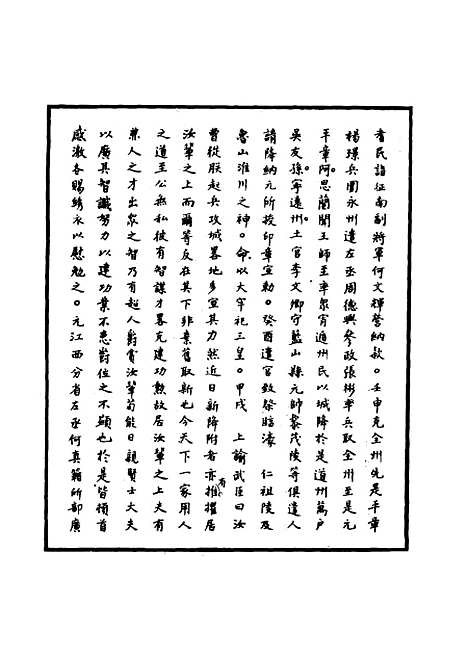 者民詣征南副將軍何文輝營納款○壬申克全州先是平章
楊璟兵圍永州遣左丞周德興參政張彬率兵取全州至是元
平章阿思蘭聞王師至率衆宵遁州民以城降於是道州萬戶
吳友孫寧遠州土官李文卿守藍山縣元帥黎茂陵等俱遣人
請降納元所授印章宣勅○癸酉遣官致祭脂濠　仁祖陵及
魯山淮川之神○命以大牢祀三皇○甲戌　上諭武臣曰汝
曹從朕起兵攻城畧地多宣其力然近日新降附者亦有推擢居
汝輩之上而爾等反在其下非棄舊取新也今天下一家用人
之道至公無私彼有智謀才畧克建功勲故居汝輩之上夫有
兼人之才出衆之智乃有超人爵賞汝輩茍能日親賢士大夫
以廣其智識努力以建功業不患爵位之不顯也於是皆頓首
感激各賜綺衣以慰勉之○元江西分省左丞何真籍所部廣